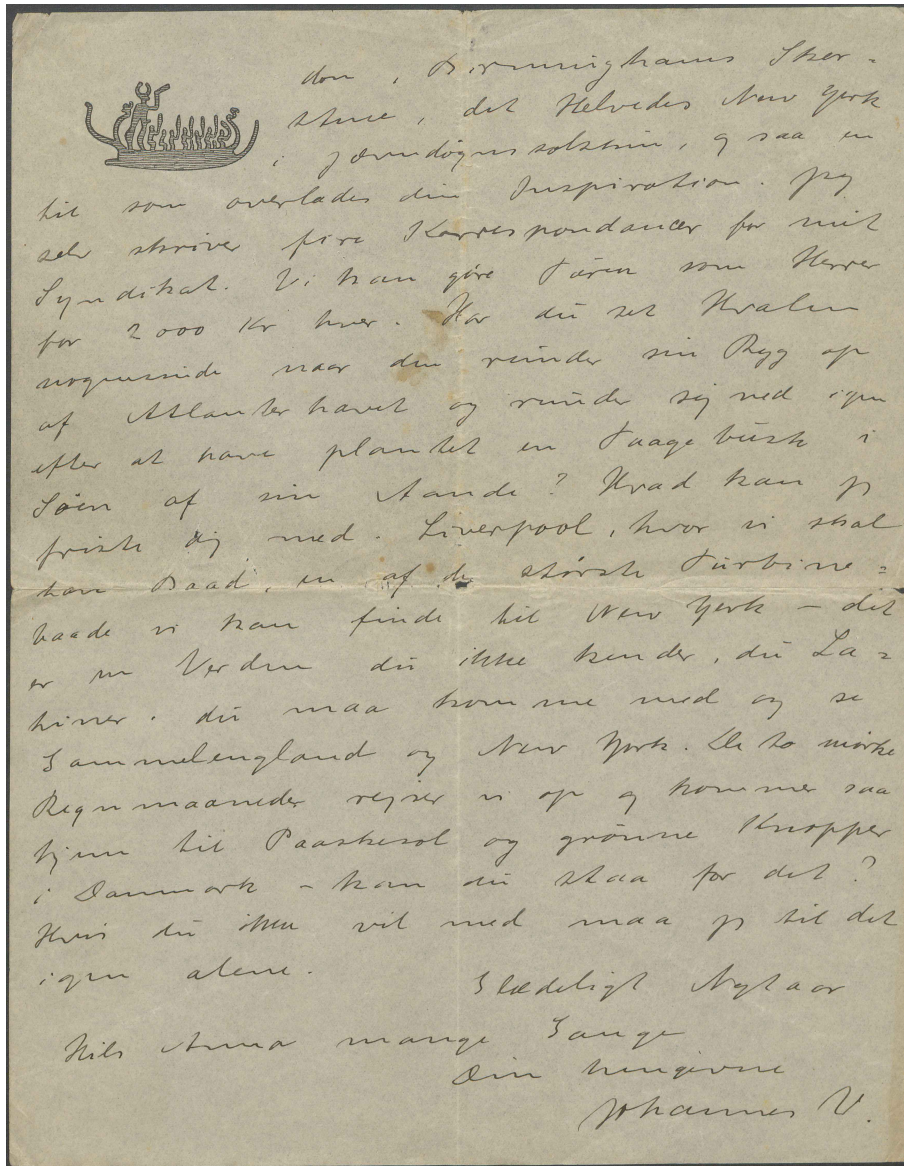 don, Birminghams Skor=
stene, det Helvedes New York
i Jævndøgnssolskin, og saa en
til som overlades din Inspiration. Jeg
selv skriver fire Korrespondancer for mit
Syndikat. Vi kan gøre Turen som Herrer
for 2000 Kr hver. Har du set Hvalen
nogensinde naar den runder sin Ryg op
af Atlanterhavet og runder sig ned igen
efter at have plantet en Taagebusk i
Søen af sin Aande? Hvad kan jeg
friste dig med. Liverpool, hvor vi skal
have Baad, en af de største Turbine=
baade vi kan finde til New York – det
er en Verden du ikke kender, du La=
tiner. du maa komme med og se
Gammelengland og New York. De to mørke
Regnmaaneder rejser vi op og kommer saa
hjem til Paaskesol og grønne Knopper
i Danmark – kan du staa for det?
Hvis du ikke vil med maa jeg til det
igen alene.
Glædeligt Nytaar
Hils Anna mange Gange
Din hengivne
Johannes V.